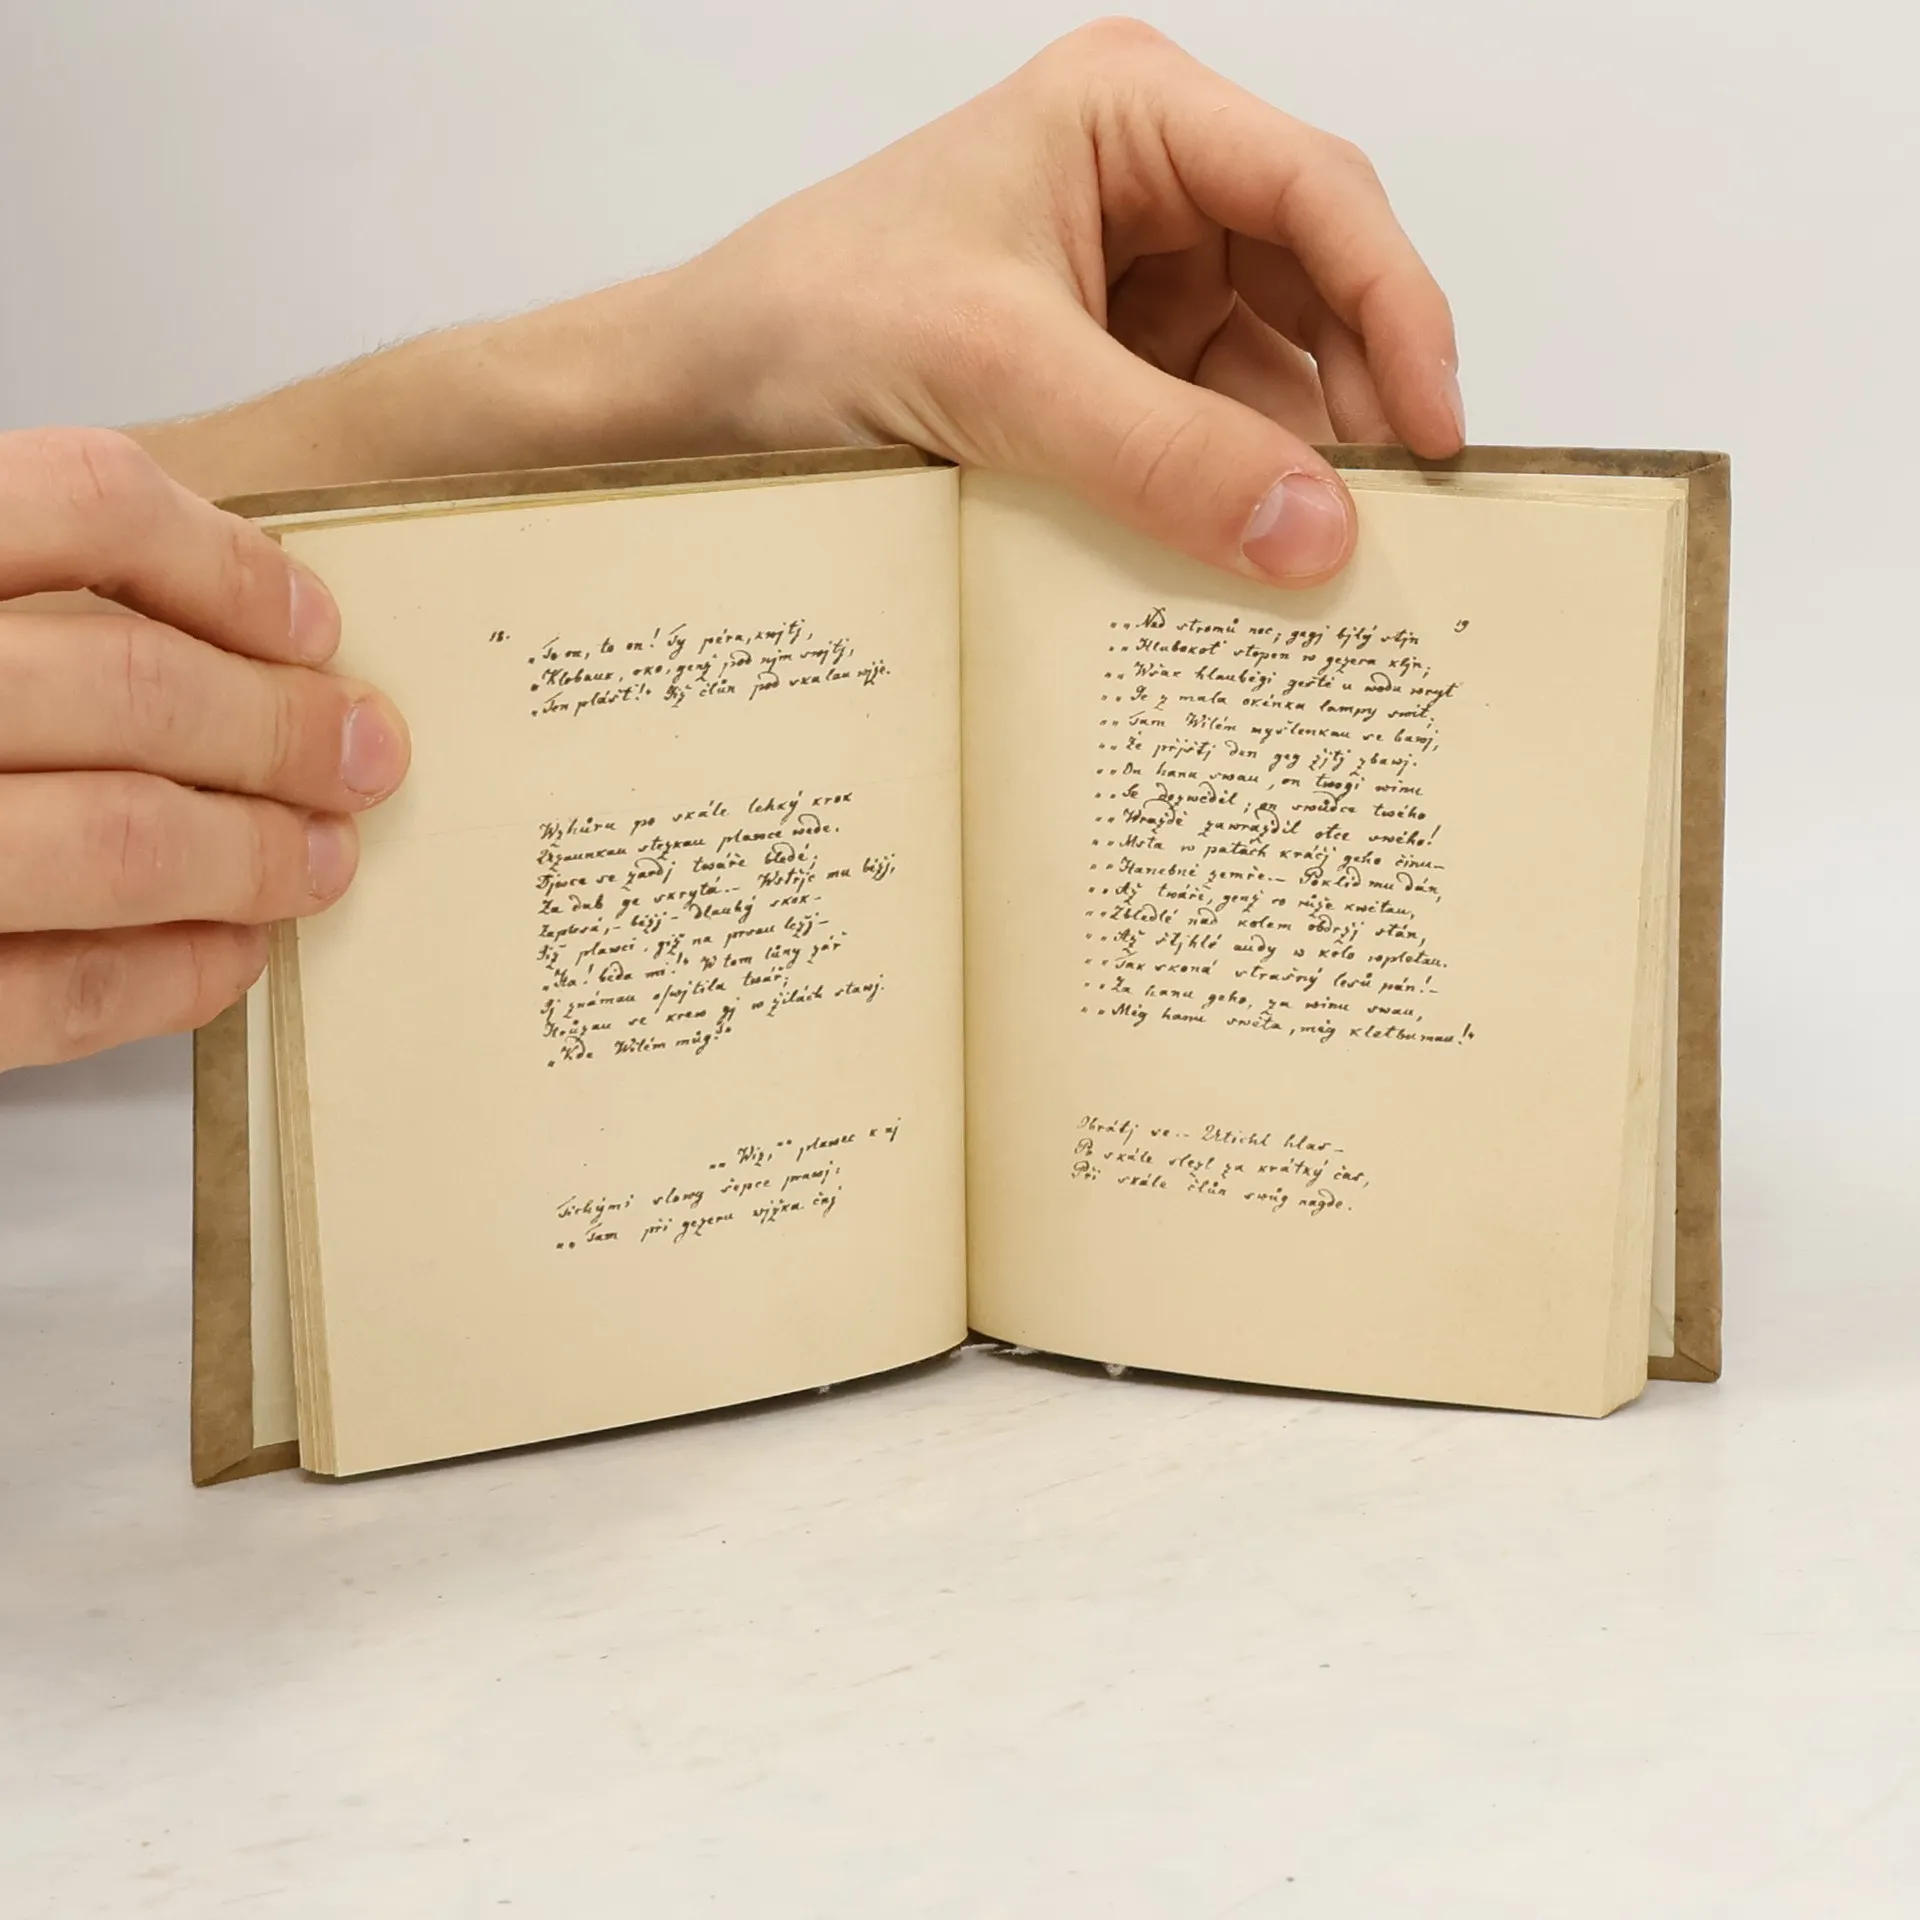 18.
„To on, to on! Ty péra, kwjtj,
„Klobauk, oko, genž pod njm swjtj,
„Ten plášť!“ Giž člůn pod skalau wjže.
Wzhůru po skále lehký krok
Zězaunkau stezkau plawce wede.
Djwce se zardj twáře bledé;
Za dub ge skrytá.— Wstřjc mu běžj,
Zaplesá,— běžj— dlauhý skok—
Giž plawci, giž na prsau ležj—
„Ha! běda mi!“ W tom lůny zář
Gj známau oswjtila twář;
Hrůzau se krew gj w žilách stawj.
„Kde Wilém můg?“
„„Wiz,““ plawec k nj
Tichými slowy šepce prawj:
„„Tam při gezeru wjžka čnj
19
„„Nad stromů noc; gegj bjlý stjn
„„Hlubokoť stopen w gezera kljn;
„„Wšak hlauběgi geště u wodu wryt
„„Ge z mala okénka lampy swit;
„„Tam Wilém myšlenkau se bawj,
„„Že přjštj den geg žitj zbawj.
„„On hanu swau, on twogi winu
„„Se dozwěděl; on swůdce twého
„„Wraždě zawraždil otce swého!
„„Msta w patách kráčj geho činu—
„„Hanebně zemře.— Poklid mu dán,
„„Až twáře, genž co růže kwětau,
„„Zbledlé nad kolem obdržj stán,
„„Až štjhlé audy w kolo wpletau.
„„Tak skoná strašný lesů pán!—
„„Za hanu geho, za winu swau,
„„Měg hanu swěta, měg kletbu mau!“
Obrátj se.— Utichl hlas—
Po skále slezl za krátký čas,
Při skále člůn swůg nagde.